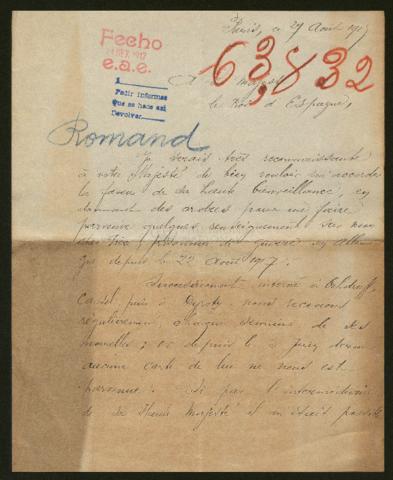 Paris, ce 29 Août 1917
Fecho
1917
e.a.e.
63,832
A Sa Majesté
le Roi d'Espagne,
1
Pedir informes
Que se hace así
Devolver
Romand
Je serais très reconnaissante
à votre Majesté de bien vouloir m'accorder
la faveur de sa haute bienveillance, en
donnant des ordres pour me faire
parvenir quelques renseignements sur mon
prisonnier de guerre en
depuis le 22 Août 1917.
Successivement interné à
Cassel, puis à nous recevions
régulièrement chaque semaine de ses
nouvelles; depuis le
aucune carte de lui ne nous est
parvenue. Si par l'intermédiaire
de Sa Majesté il m'était possible